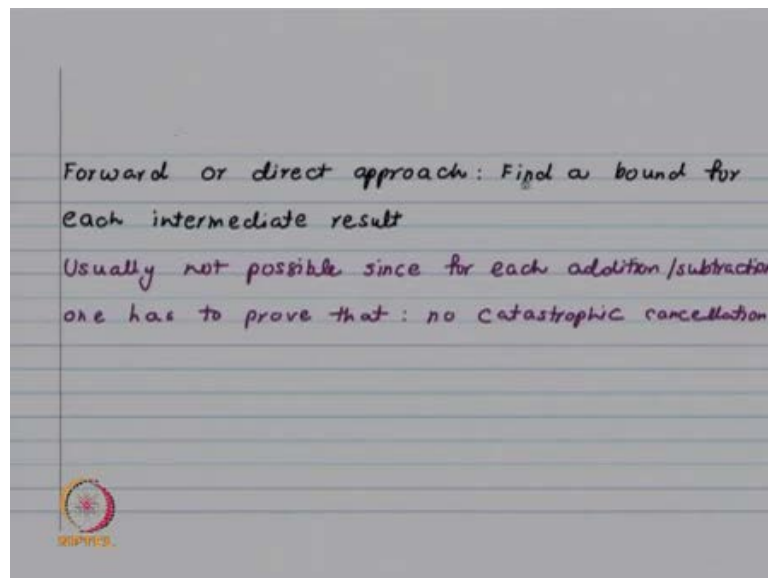 Forward or direct approach: Find a bound for
each intermediate result
Usually not possible since for each addition/subtraction
one has to prove that: no catastrophic cancellation
NPTEL